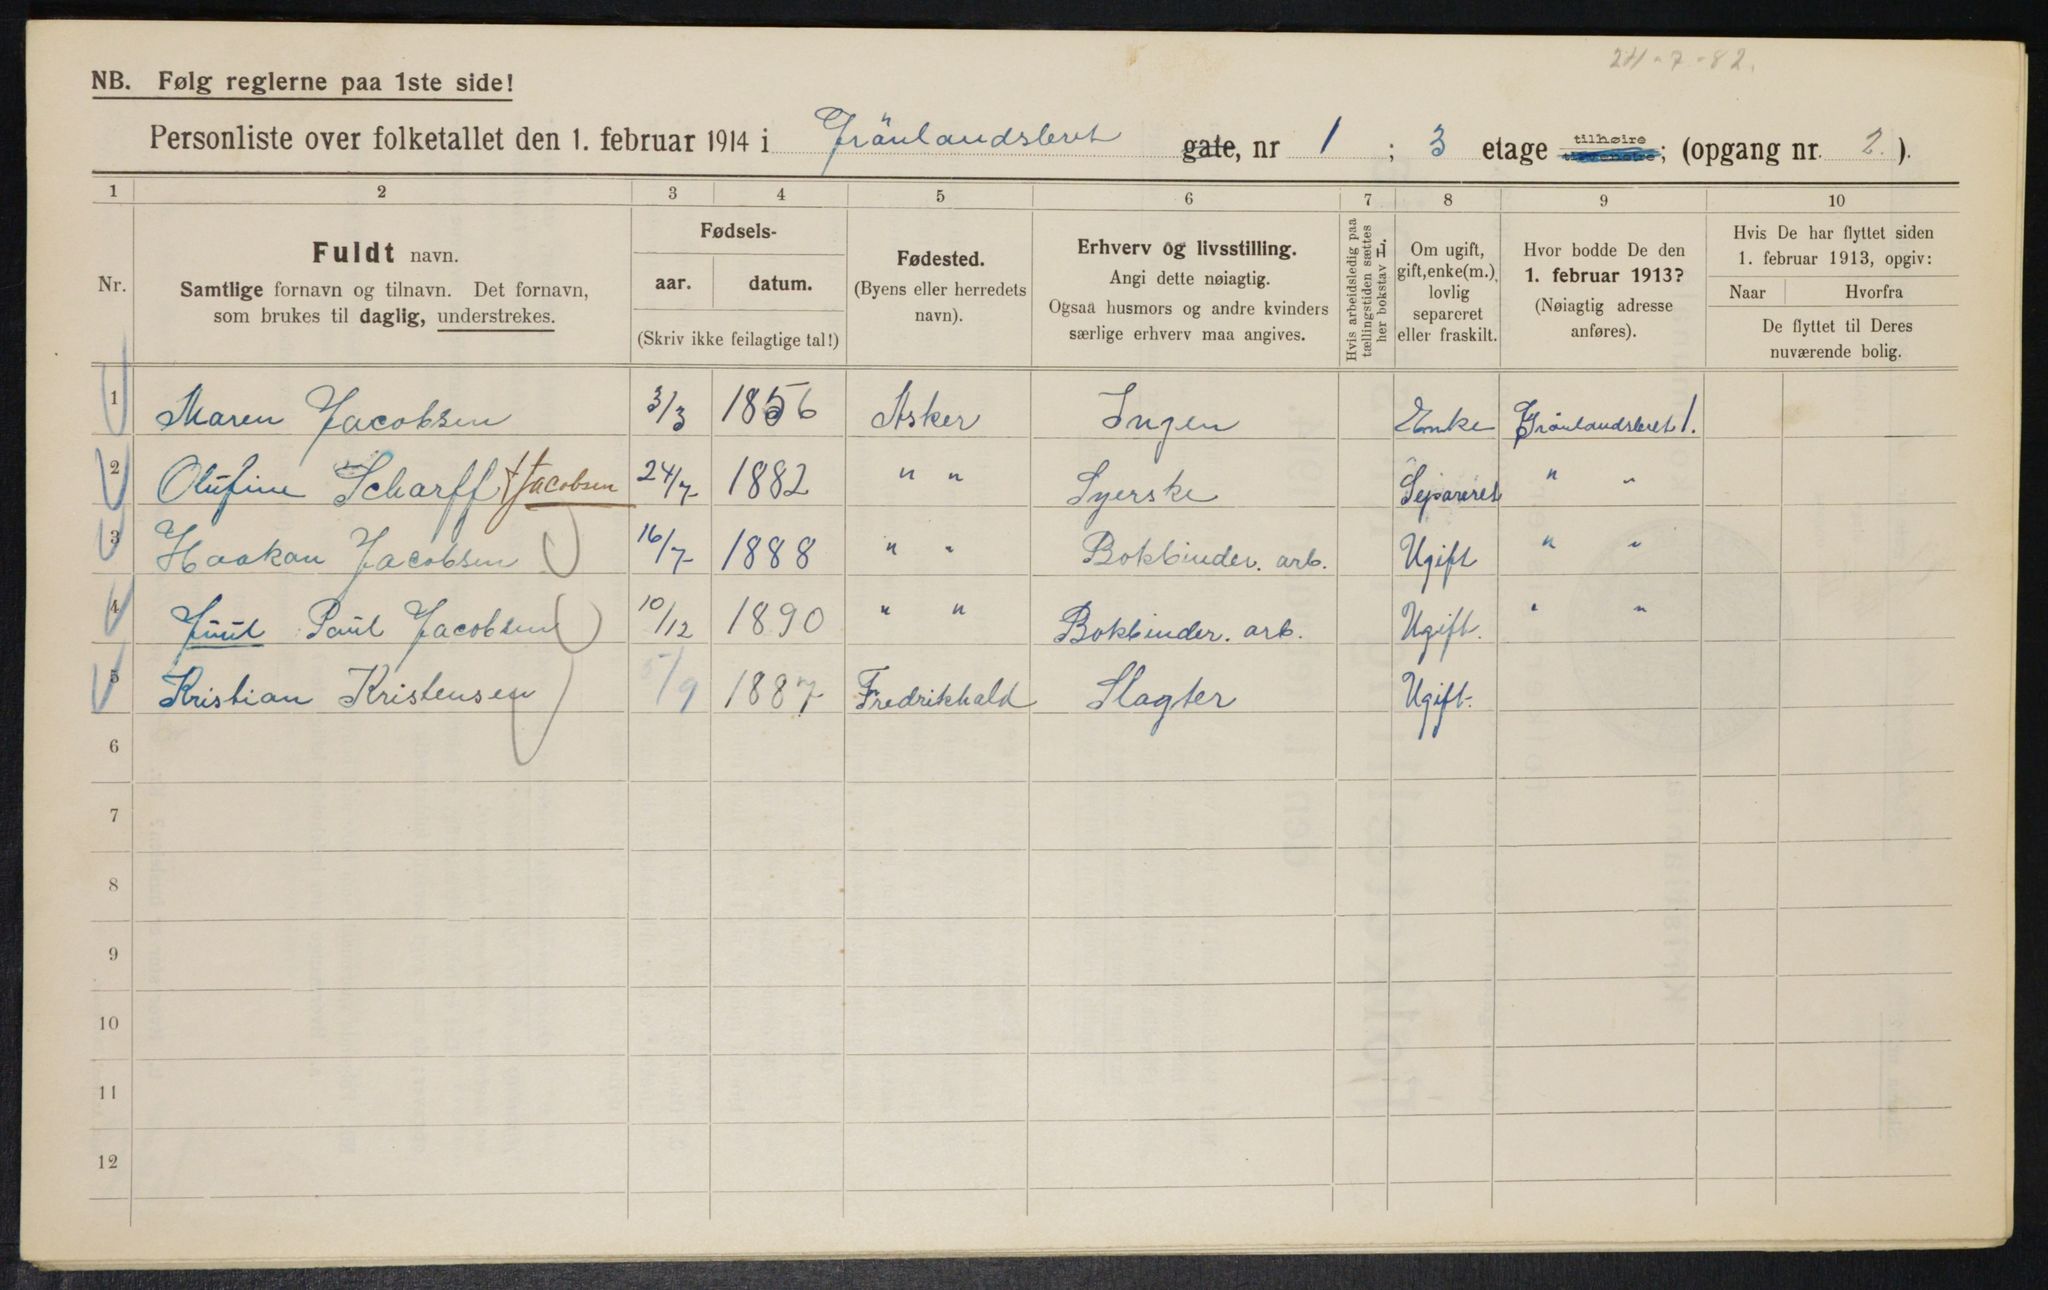 24-7-82.
NB. Følg reglerne paa 1ste side!
Personliste over folketallet den 1. februar 1914 i Grönlandsleret gate, nr 1 ; 3 etage tilhøire ; (opgang nr. 2).
1 2 3 4 5 6 7 8 9 10
Nr.
Fuldt navn.
Samtlige fornavn og tilnavn. Det fornavn,
som brukes til daglig, understrekes.
Fødsels-
aar. datum.
(Skriv ikke feilagtige tal!)
Fødested.
(Byens eller herredets
navn).
Erhverv og livsstilling.
Angi dette nøiagtig.
Ogsaa husmors og andre kvinders
særlige erhverv maa angives.
Hvis arbeidsledig paa
tællingstiden sættes
her bokstav L.
Om ugift,
gift, enke(m.),
lovlig
separeret
eller fraskilt.
Hvor bodde De den
1. februar 1913?
(Nøiagtig adresse
anføres).
Hvis De har flyttet siden
1. februar 1913, opgiv:
Naar Hvorfra
De flyttet til Deres
nuværende bolig.
1 Maren Jacobsen 3/3 1856 Asker Ingen Enke Grönlandsleret 1.
2 Olufine Scharff f. Jacobsen 24/7 1882 " " Syerske Separeret " "
3 Haakon Jacobsen 16/7 1888 " " Bokbinder. arb. Ugift " "
4 Juul Paul Jacobsen 10/12 1890 " " Bokbinder. arb. Ugift. " "
5 Kristian Kristensen 5/9 1887 Fredrikhald Slagter Ugift.
6
7
8
9
10
11
12